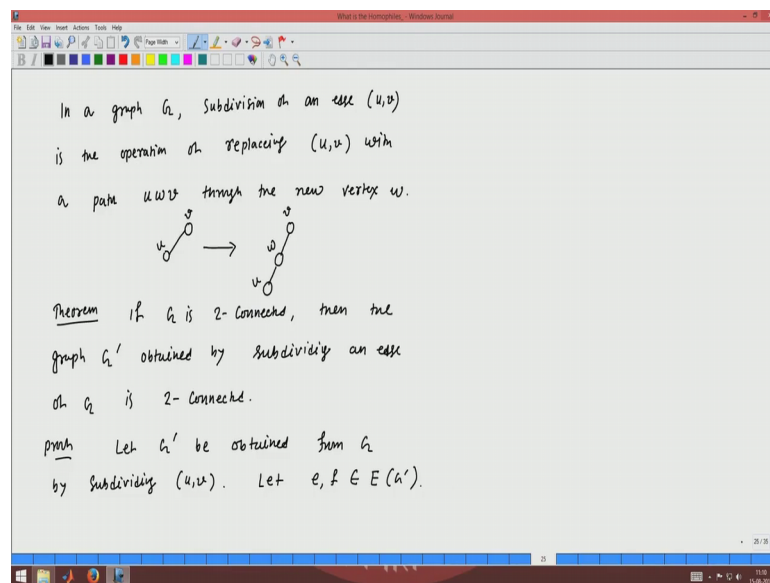 What is the Homophiles_ - Windows Journal
File Edit View Insert Actions Tools Help
Page Width
B I
In a graph G, Subdivision of an edge (u,v)
is the operation of replaceing (u,v) with
a path u w v through the new vertex w.
v v
u w
u
Theorem If G is 2-Connected, then the
graph G' obtained by subdividing an edge
of G is 2-Connected.
proof Let G' be obtained from G
by Subdividing (u,v). Let e, f ∈ E(G').
25 / 35
25
11:10